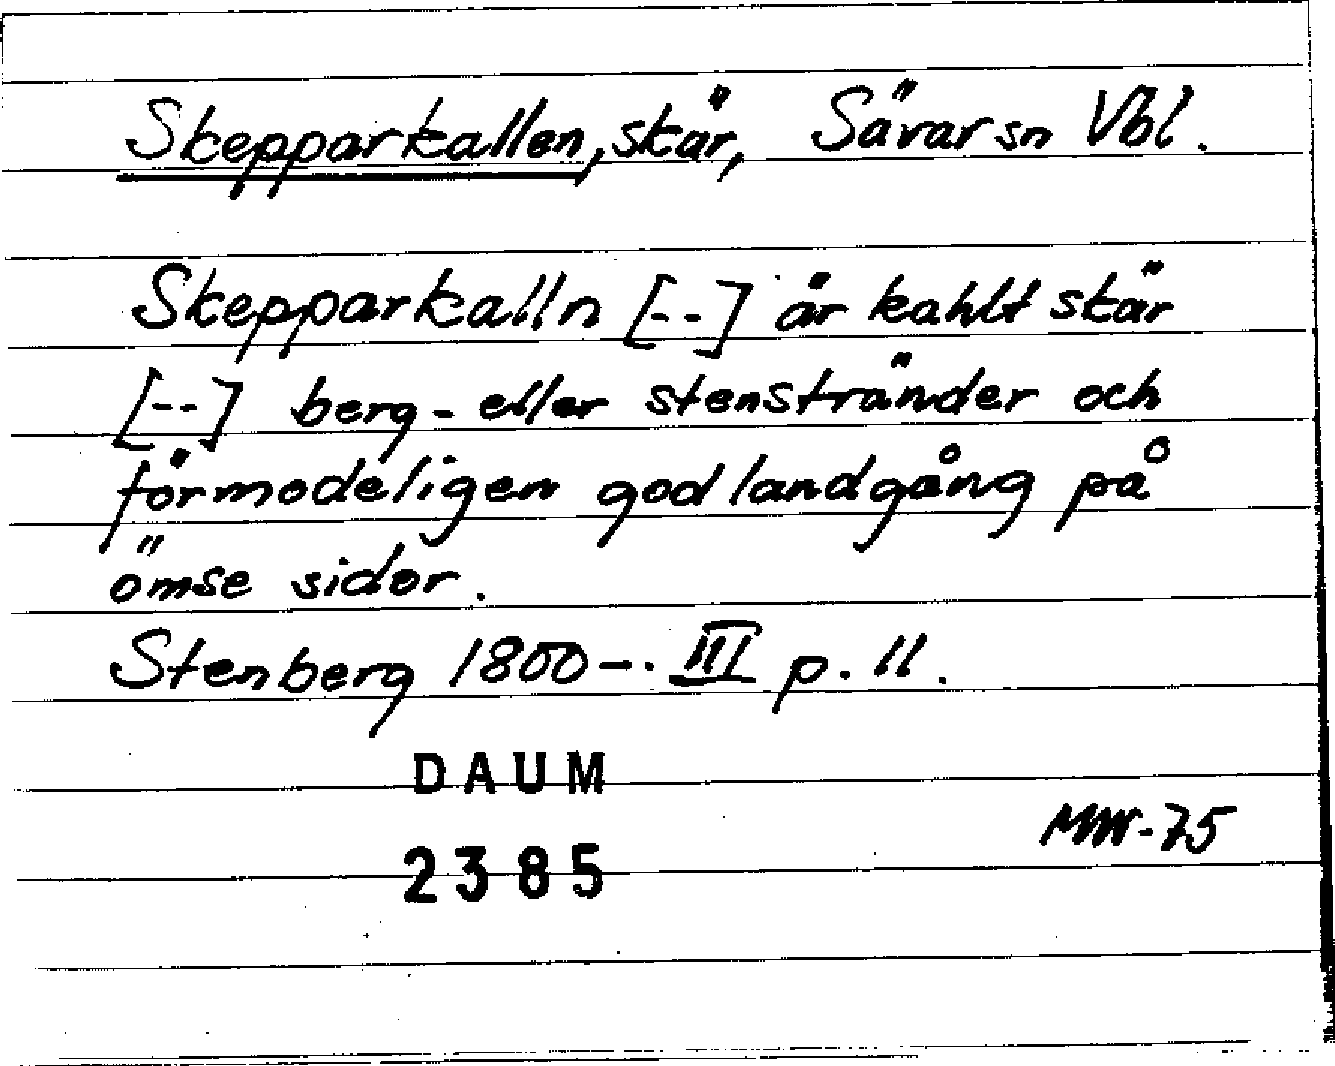 Skepparkallen, skär, Sävar sn Vbl.
Skepparkalln [--] är kahlt skär
[--] berg- eller stenstränder och
förmodeligen god landgång på
ömse sidor.
Stenberg 1800-. III p. 11.
DAUM
MW-75
2385